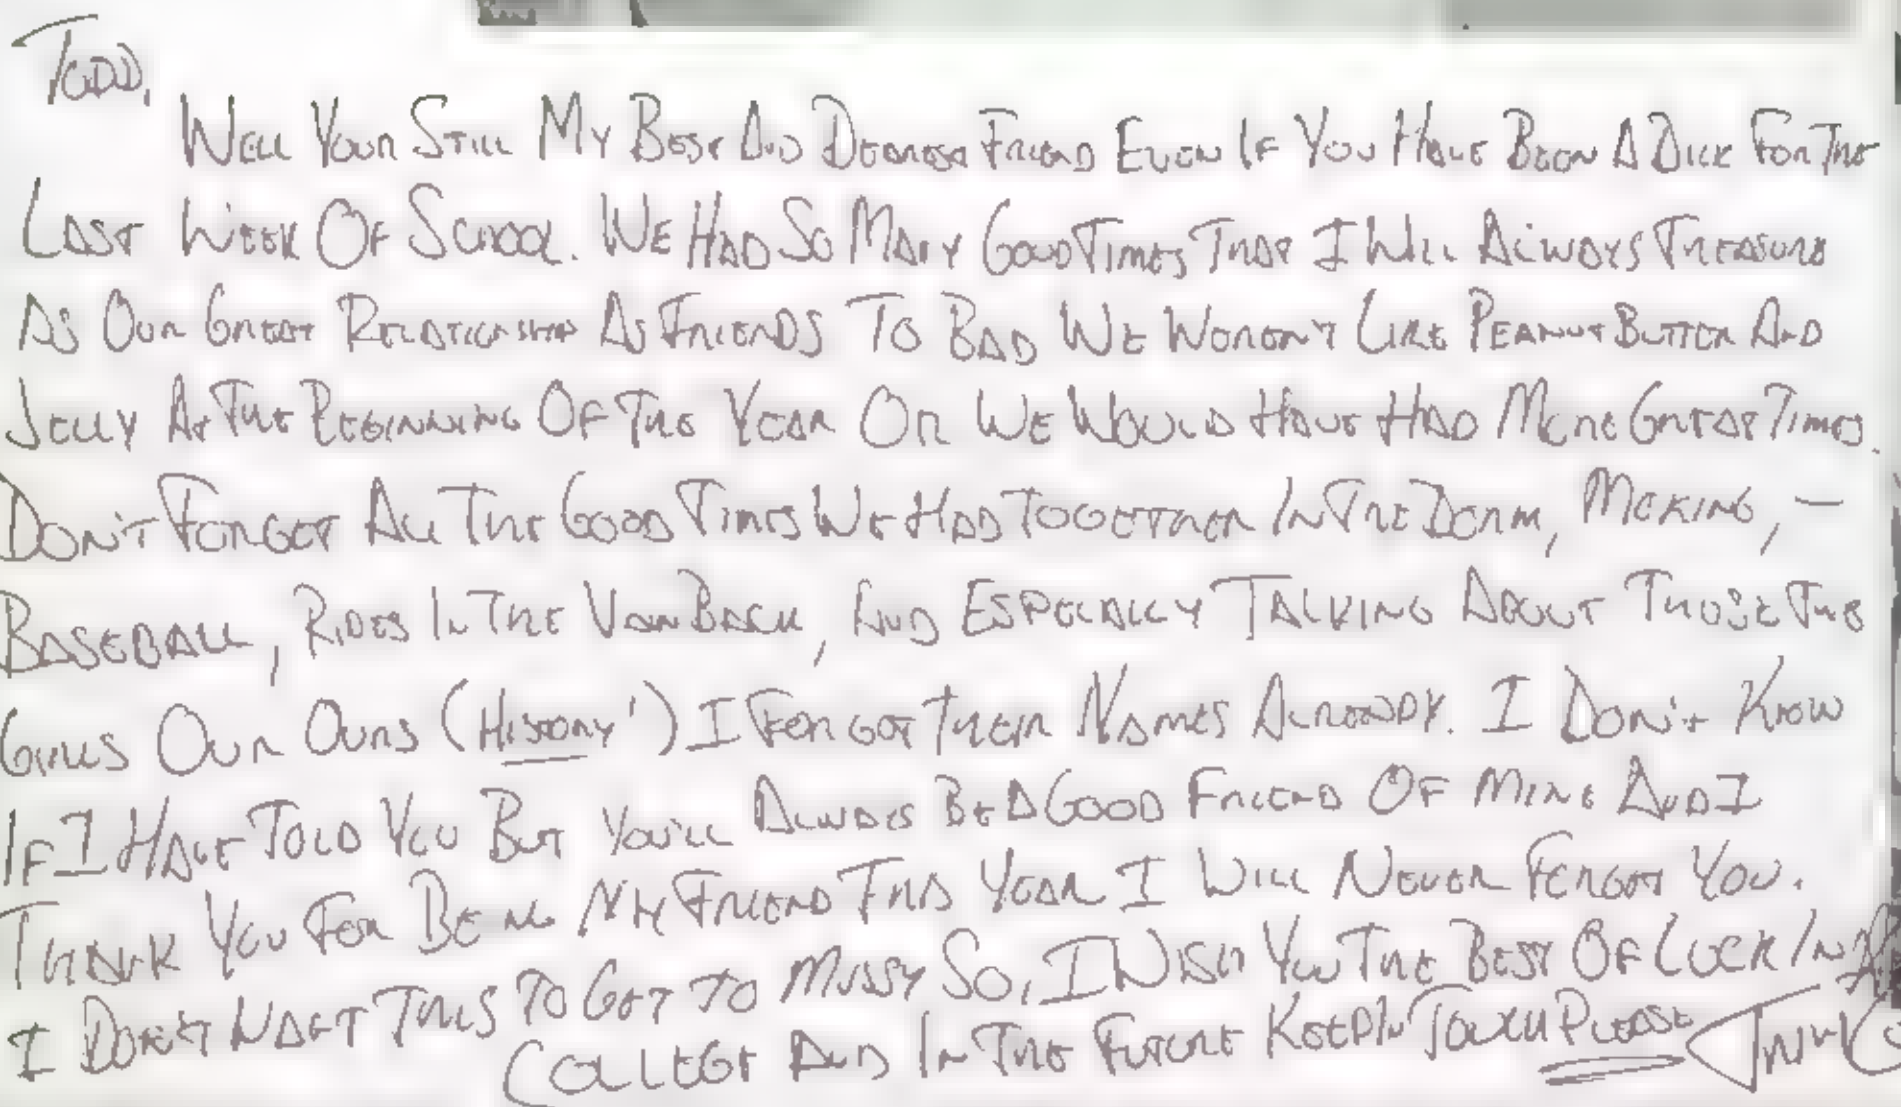 Todd,
Well Your Still My Best And Dearest Friend Even If You Have Been A Dick For The
Last Week Of School. We Had So Many Good Times That I Will Always Treasure
As Our Great Relationship As Friends To Bad We Weren't Like Peanut Butter And
Jelly At The Beginning Of The Year Or We Would Have Had More Great Times.
Don't Forget All The Good Times We Had Together In The Dorm, Moking, —
Baseball, Rides In The Van Back, And Especially Talking About Those The
Girls Our Ours (History') I Forgot Their Names Already. I Don't Know
If I Have Told You But You'll Always Be A Good Friend Of Mine And I
Thank You For Being My Friend This Year I Will Never Forget You.
I Don't Want This To Get To Mussy So, I Wish You The Best Of Luck In
College And In The Future Keep In Touch Please